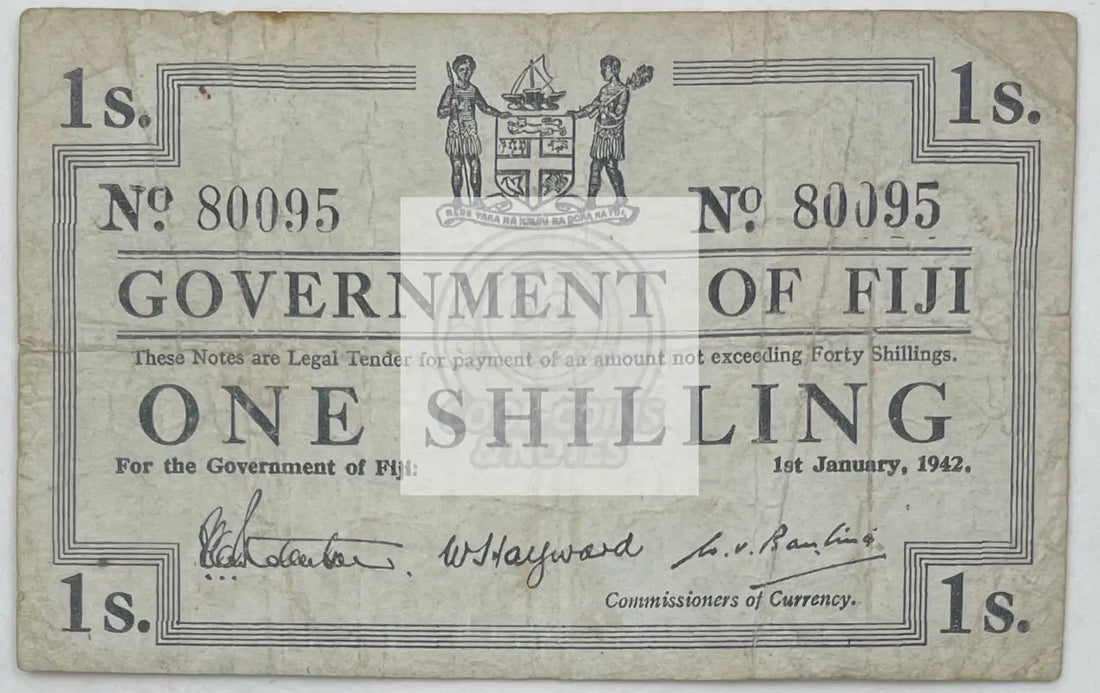 1s. 1s.
RERE VAKA NA KALOU KA DOKA NA TUI
Nº 80095 Nº 80095
GOVERNMENT OF FIJI
These Notes are Legal Tender for payment of an amount not exceeding Forty Shillings.
ONE SHILLING
For the Government of Fiji: 1st January, 1942.
WSHayward
Commissioners of Currency.
1s. 1s.
& NOTES